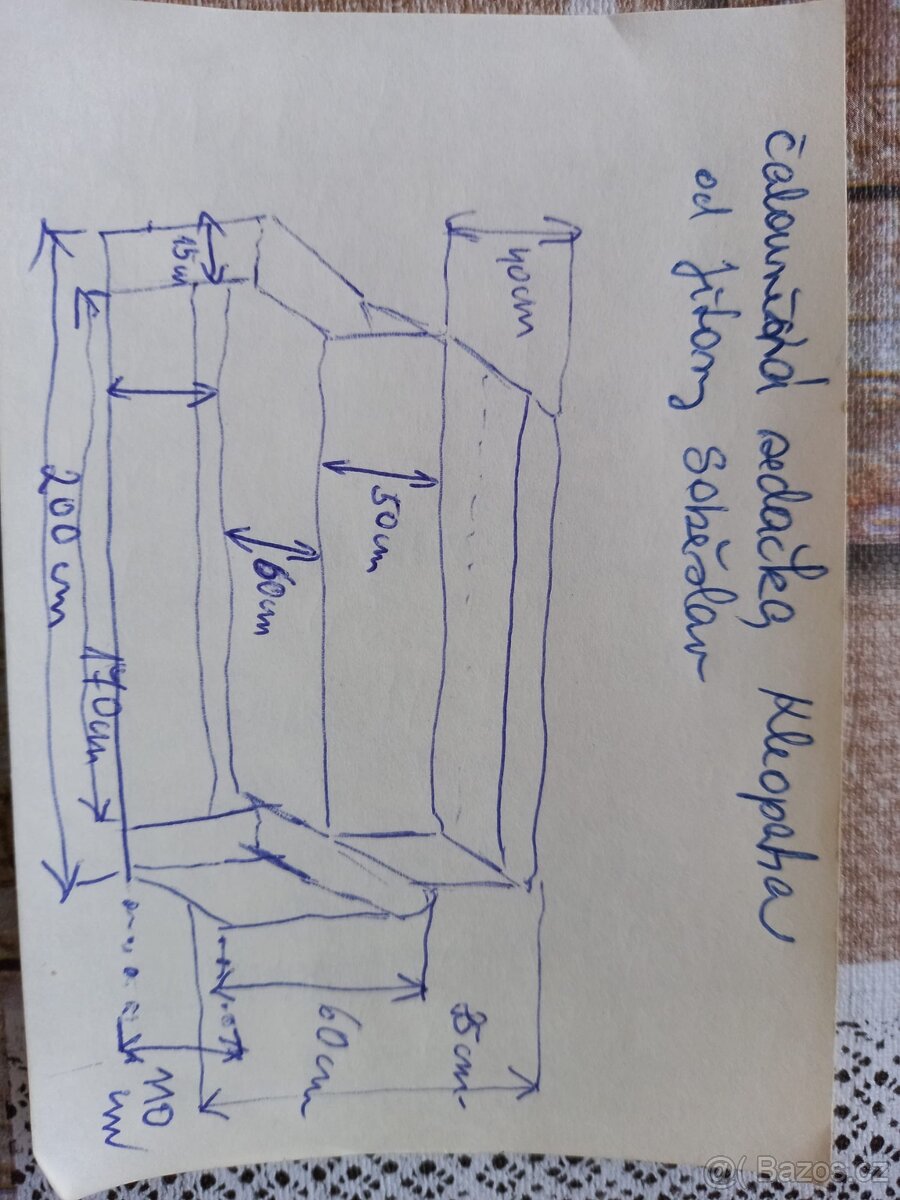 čalouněná sedačka Kleopatra
od Jitony Soběslav
40cm
15cm
50cm
60cm
200cm
170cm
60cm
110
cm
@( Bazos.cz